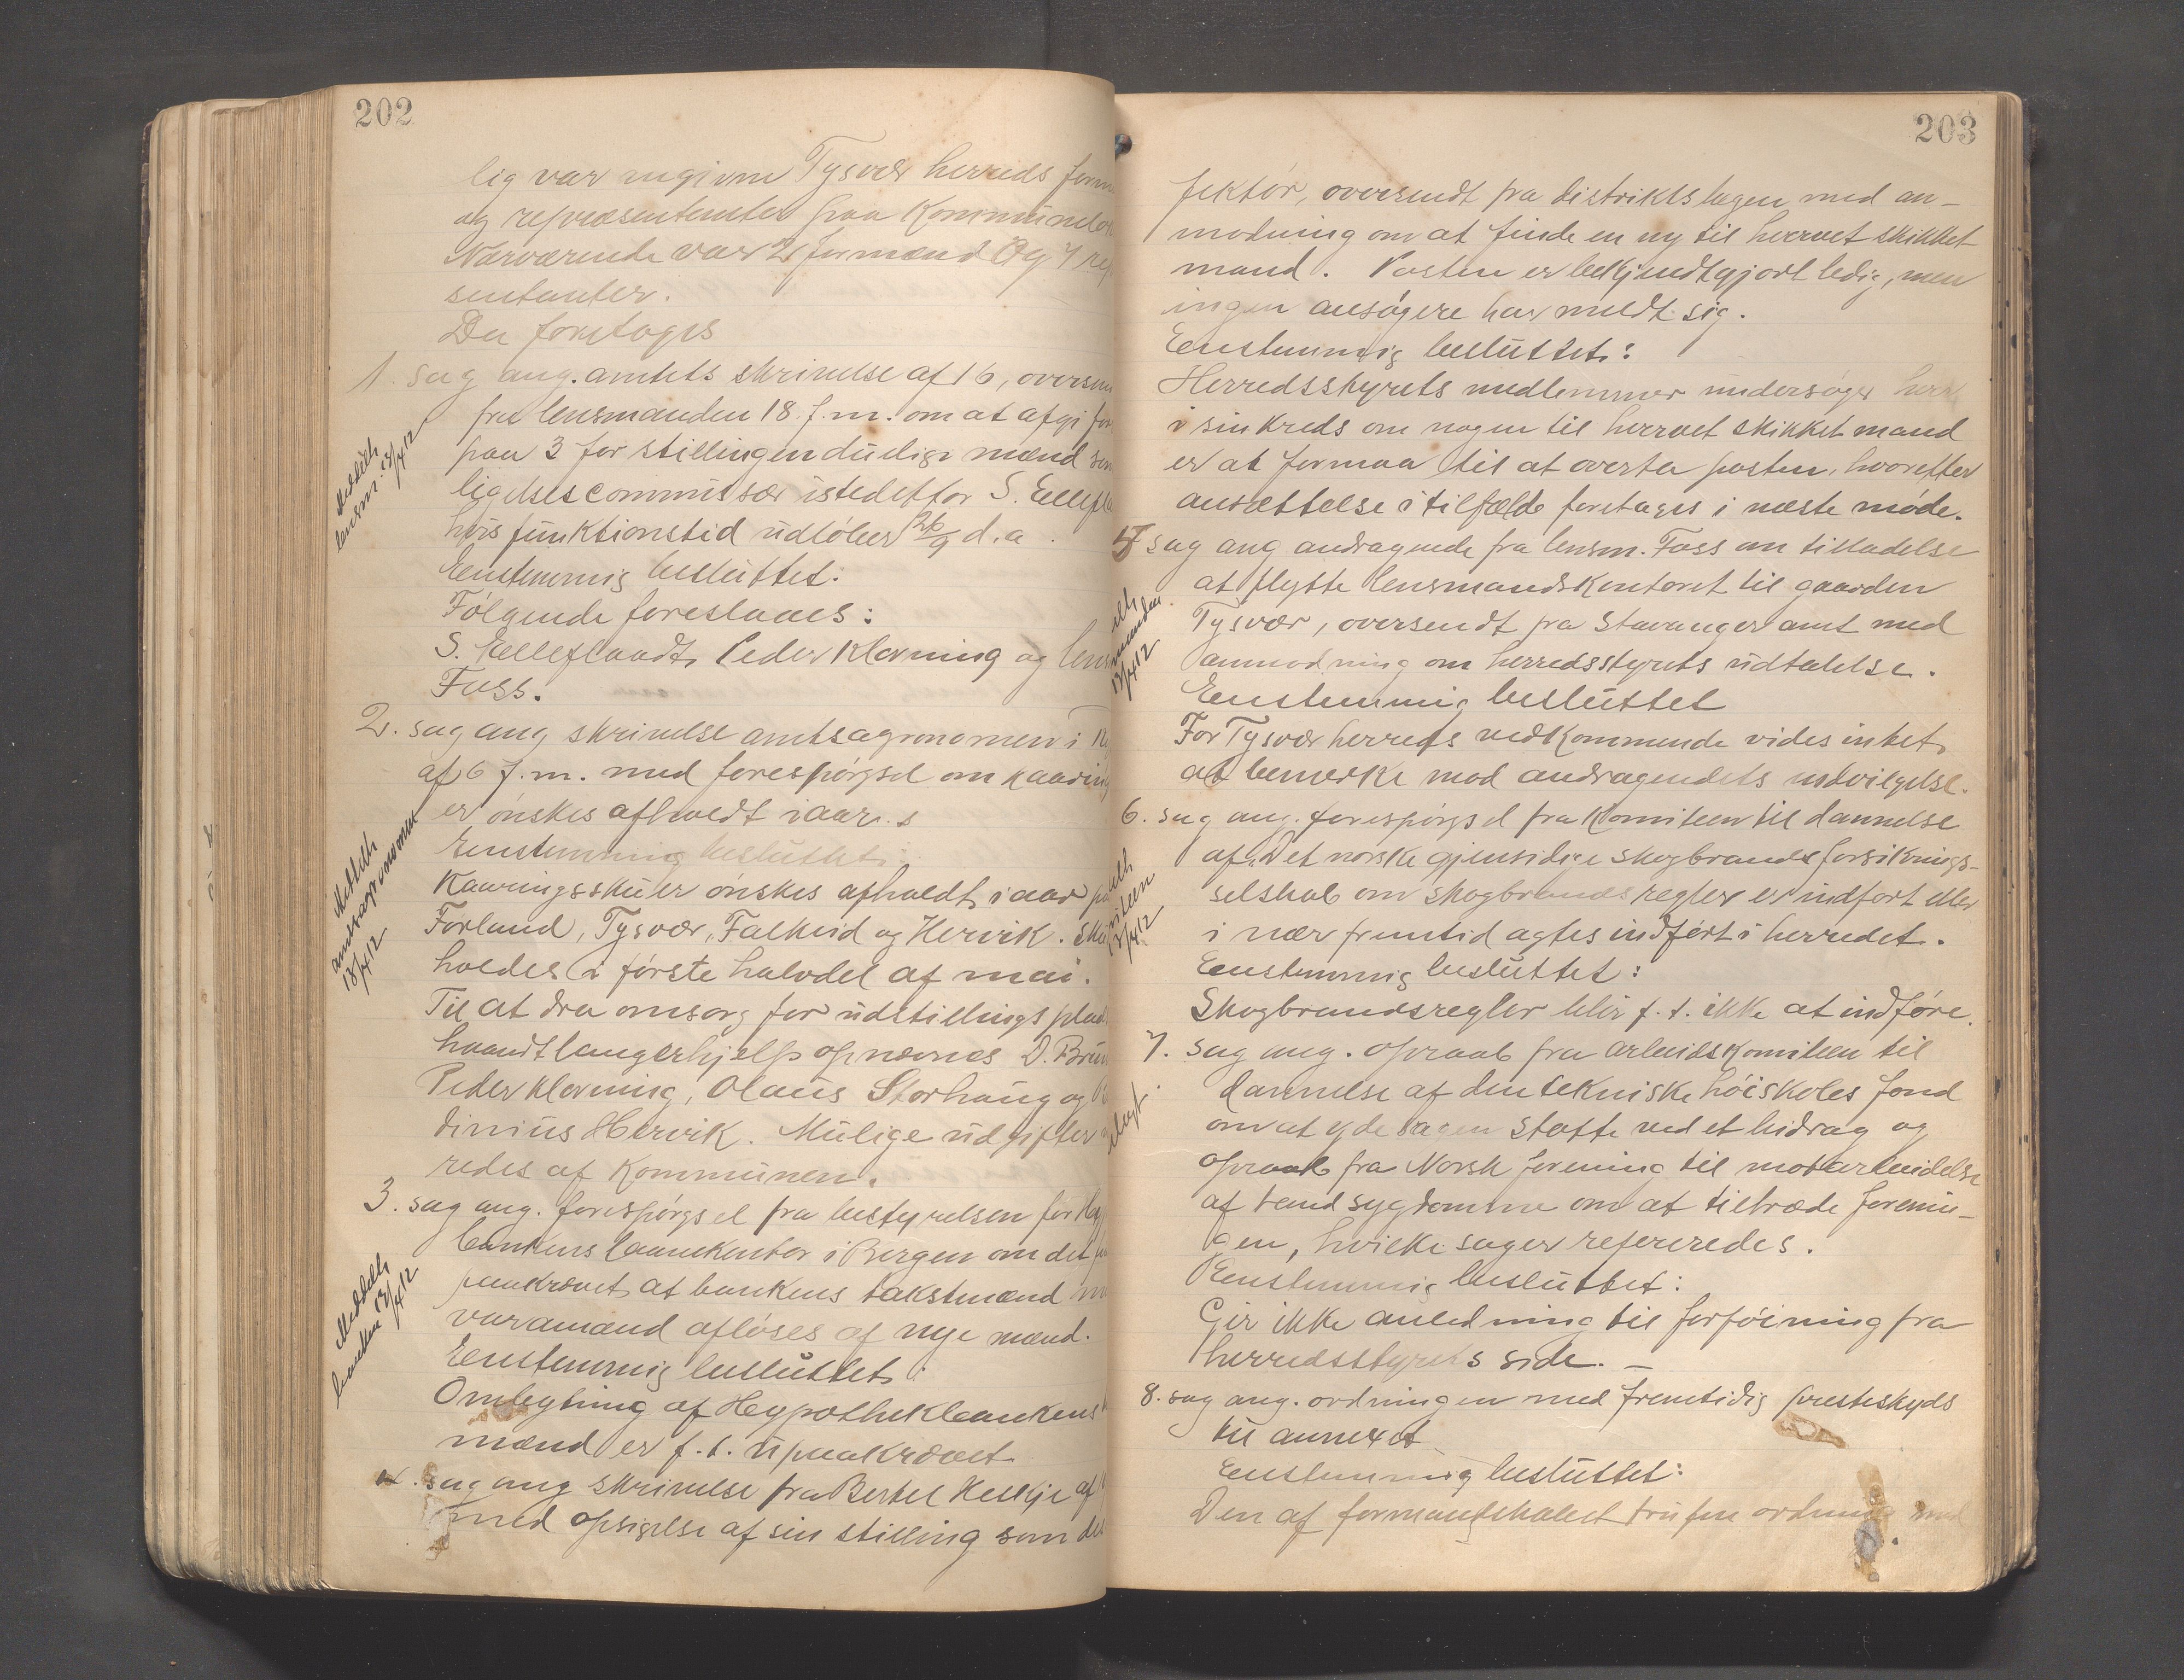 202
lig var Tysvær herreds form
og repræsentanter paa Kommunelok
Nærværende var 2 formænd Og 7 re
sentanter.
Der foretoges
1. sag ang. amtets skrivelse af 16, oversen
fra lensmanden 18 f. m. om at afgi for
paa 3 for stillingen duelige mænd som
ligelsescommissær istedetfor S. Eellefla
hvis funktionstid udløber 26/9 d. a.
Eenstemmig besluttet:
Følgende foreslaaes:
S. Eelleflaadt, Peder Klovning og lens
Foss.
Meddelt
lensm. 13/4 12
2. sag ang skrivelse amtsagronomen i
af 6 f. m. med forespørgsel om kaaring
er ønskes afholdt iaar.
Eenstemmig besluttet:
Kaaringsskuer ønskes afholdt iaar paa
Førland, Tysvær, Falkeid og Hervik. Sku
holdes i første halvdel af mai.
Til at dra omsorg for udstillingsplad
haandtlangerhjelp opnævnes D. Brun
Peder Klovning, Olaus Storhaug og
dinius Hervik. Mulige udgifter
redes af Kommunen.
Meddelt
amtsagronomen
13/4 12
3. sag ang. forespørgsel fra bestyrelsen for Hy
bankens laanekontor i Bergen om det
paakrævet at bankens takstmænd
varamænd afløses af nye mænd.
Eenstemmig besluttet:
Ombytning af Hypothekbankens
mænd er f. t. upaakrævet.
Meddelt
banken 13/4 12
4. sag ang skrivelse fra Bertel Helkje af
med opsigelse af sin stilling som des
203
fektør, oversendt fra distriktslægen med an-
modning om at finde en ny til hvervet skikket
mand. Posten er bekjendtgjort ledig, men
ingen ansøgere har meldt sig.
Eenstemmig besluttet:
Herredsstyrets medlemmer undersøger hver
i sin kreds om nogen til hvervet skikket mand
er at formaa til at overta posten, hvorefter
ansættelse i tilfælde foretages i næste møde.
5 sag ang andragende fra lensm. Foss om tilladelse
at flytte lensmandskontoret til gaarden
Tysvær, oversendt fra Stavanger amt med
anmodning om herredsstyrets udtalelse.
Eenstemmig besluttet
For Tysvær herreds vedkommende vides intet
at bemerke mod andragendets indvilgelse.
13/4 12
6. sag ang. forespørgsel fra Komiteen til dannelse
af Det norske gjensidige skogbrandsforsikrings-
selskab om skogbrandsregler er indført eller
i nær fremtid agtes indført i herredet.
Eenstemmig besluttet:
Skogbrandsregler blir f. t. ikke at indføre.
13/4 12
7. sag ang. opraab fra arbeidskomiteen til
dannelse af den tekniske høiskoles fond
om at yde sagen støtte ved et bidrag og
opraab fra Norsk forening til motarbeidelse
af tandsygdomme om at tiltræde forenin-
gen, hvilke sager refereredes.
Eenstemmig besluttet:
Gir ikke anledning til forføining fra
herredsstyrets side. —
8. sag ang. ordningen med fremtidig presteskyds
til annexet
Eenstemmig besluttet:
Den af formandskabet trufne ordning med